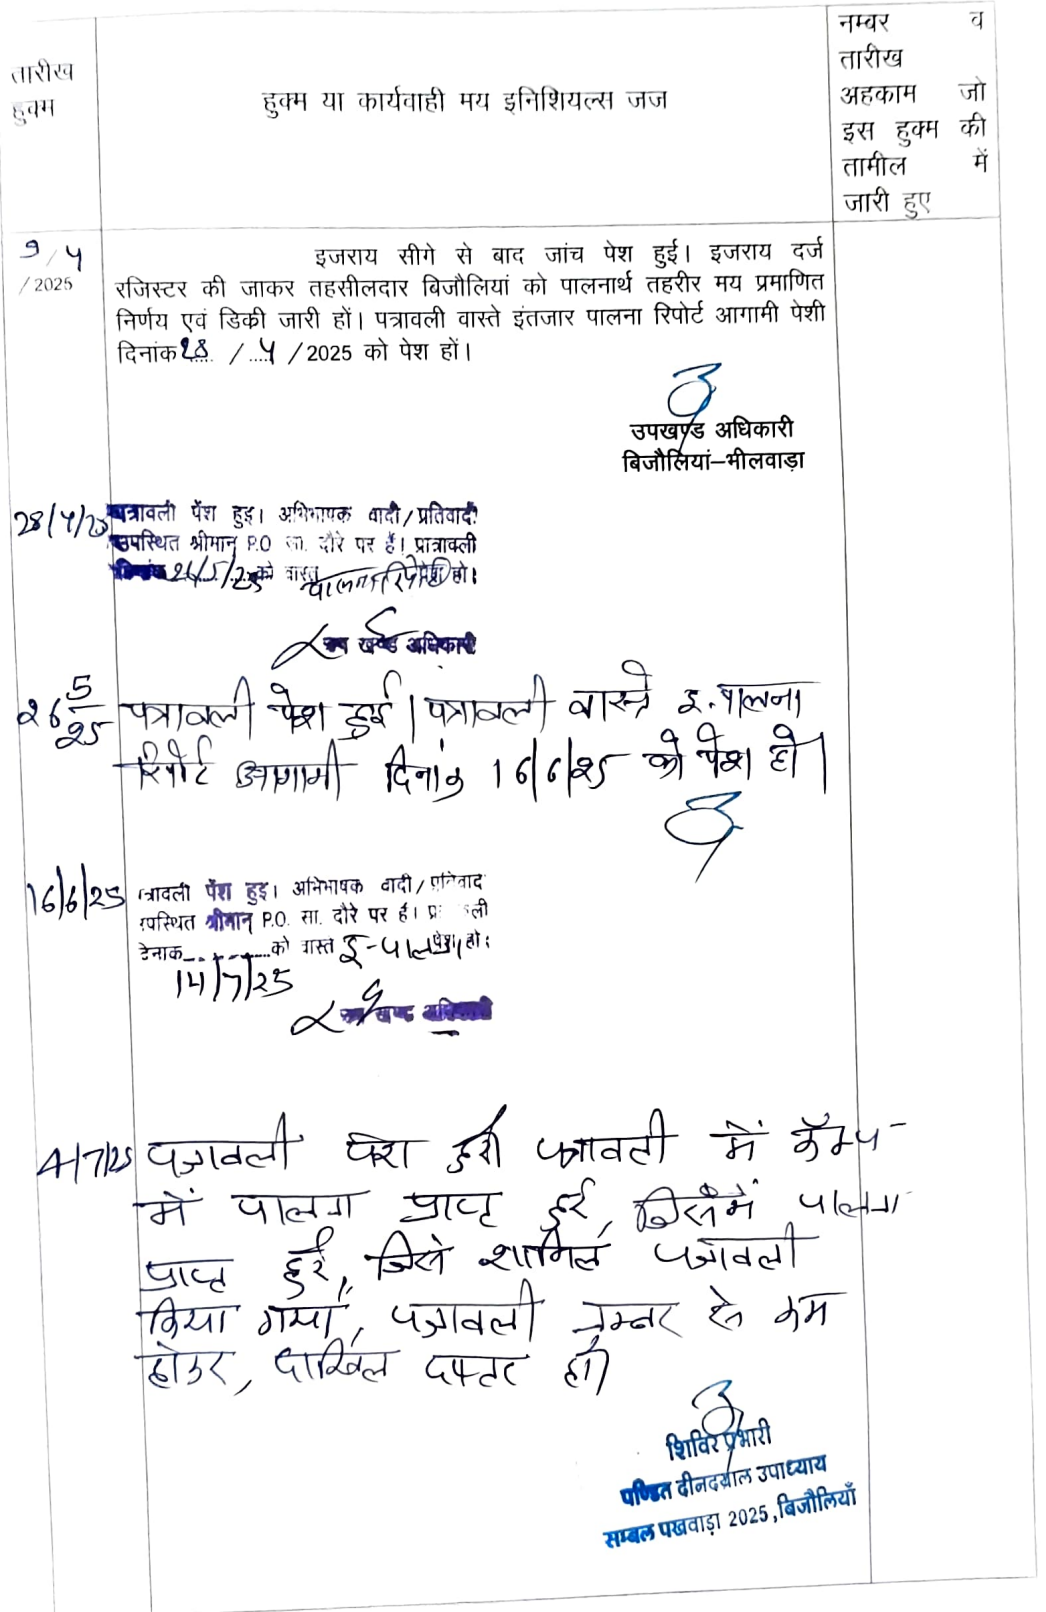 तारीख
हुक्म
हुक्म या कार्यवाही मय इनिशियल्स जज
नम्बर व
तारीख
अहकाम जो
इस हुक्म की
तामील में
जारी हुए
9/4
/2025
इजराय सीगे से बाद जांच पेश हुई। इजराय दर्ज
रजिस्टर की जाकर तहसीलदार बिजौलियां को पालनार्थ तहरीर मय प्रमाणित
निर्णय एवं डिकी जारी हों। पत्रावली वास्ते इंतजार पालना रिपोर्ट आगामी पेशी
दिनांक 28 / 4 /2025 को पेश हों।
उपखण्ड अधिकारी
बिजौलियां–भीलवाड़ा
28/4/25
पत्रावली पेंश हुइ। अभिभाषक वादी/प्रतिवादी
उपस्थित श्रीमान् P.O. सा. दौरे पर हैं। प्रात्रावली
दिनांक 26/5/25 को वास्त पालना रिपोर्ट पेश हो।
उप खण्ड अधिकारी
26 5/25
पत्रावली पेश हुई। पत्रावली वास्ते इ. पालना
रिपोर्ट आगामी दिनांक 16/6/25 को पेश हो।
16/6/25
त्रावली पेंश हुइ। अभिभाषक वादी/प्रतिवाद
उपस्थित श्रीमान् P.O. सा. दौरे पर हैं।
को वास्त इ-पालना पेश हो।
14/7/25
उप खण्ड अधिकारी
4/7/25
पत्रावली पेश हुई पत्रावली में कैम्प
में पालना प्राप्त हुई, जिसमें पालना
प्राप्त हुई, जिसे शामिल पत्रावली
किया गया, पत्रावली नम्बर से कम
होकर, दाखिल दफ्तर हो।
शिविर प्रभारी
पण्डित दीनदयाल उपाध्याय
सम्बल पखवाड़ा 2025, बिजौलियाँ